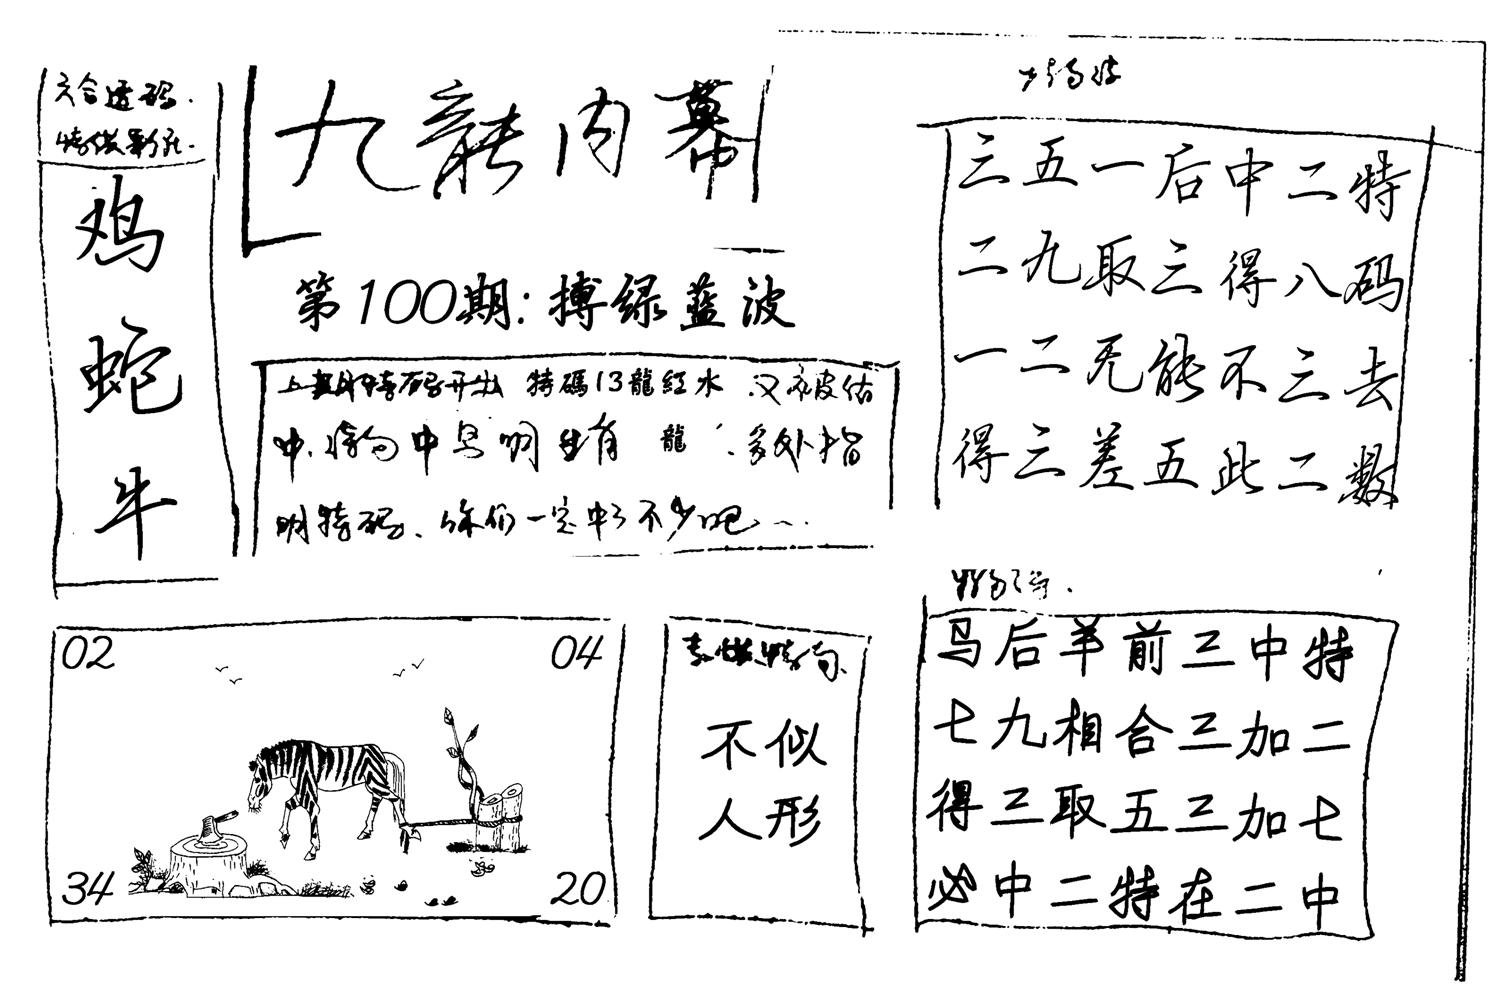 六合透码.
鸡
蛇
牛
九龍内幕
第100期:搏绿蓝波
特码开出 特碼13龍红水
中 中 明生肖 龍
明特码、你们一定中了不少吧
02
04
34
20
特句
不似
人形
三五一后中二特
二九取三得八码
一二无能不三去
得三差五此二数
马后羊前三中特
七九相合三加二
得三取五三加七
必中二特在二中